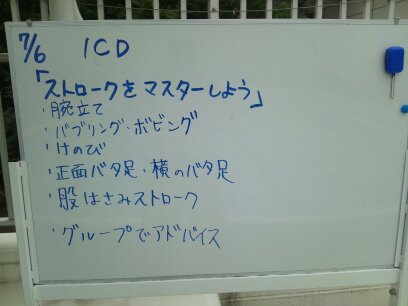 7/6 1CD
「ストロークをマスターしよう」
・腕立て
・バブリング・ボビング
・けのび
・正面バタ足・横のバタ足
・股はさみストローク
・グループでアドバイス